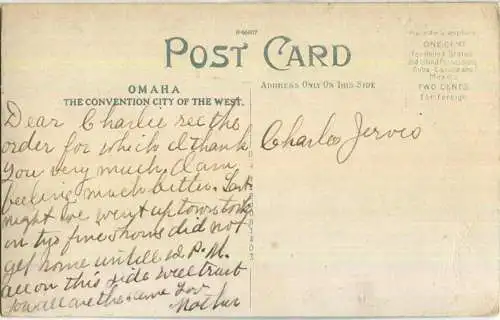 R-46607
POST CARD
OMAHA
THE CONVENTION CITY OF THE WEST.
ADDRESS ONLY ON THIS SIDE
ONE CENT
for United States
and Island Possessions
Cuba, Canada and
Mexico
TWO CENTS
for Foreign
Dear Charlie rec the
order for which I thank
you very much. I am
feeling much better. Last
night we went up town took
in the fire & home did not
get home untill 12 P.M.
all on this side well trust
you all are the same Lov
Mother
Charles Jervis